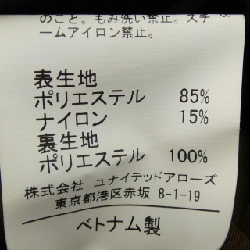 のこと。もみ洗い禁止。スチ
ームアイロン禁止。
表生地
ポリエステル 85%
ナイロン 15%
裏生地
ポリエステル 100%
株式会社 ユナイテッドアローズ
東京都港区赤坂 8-1-19
ベトナム製